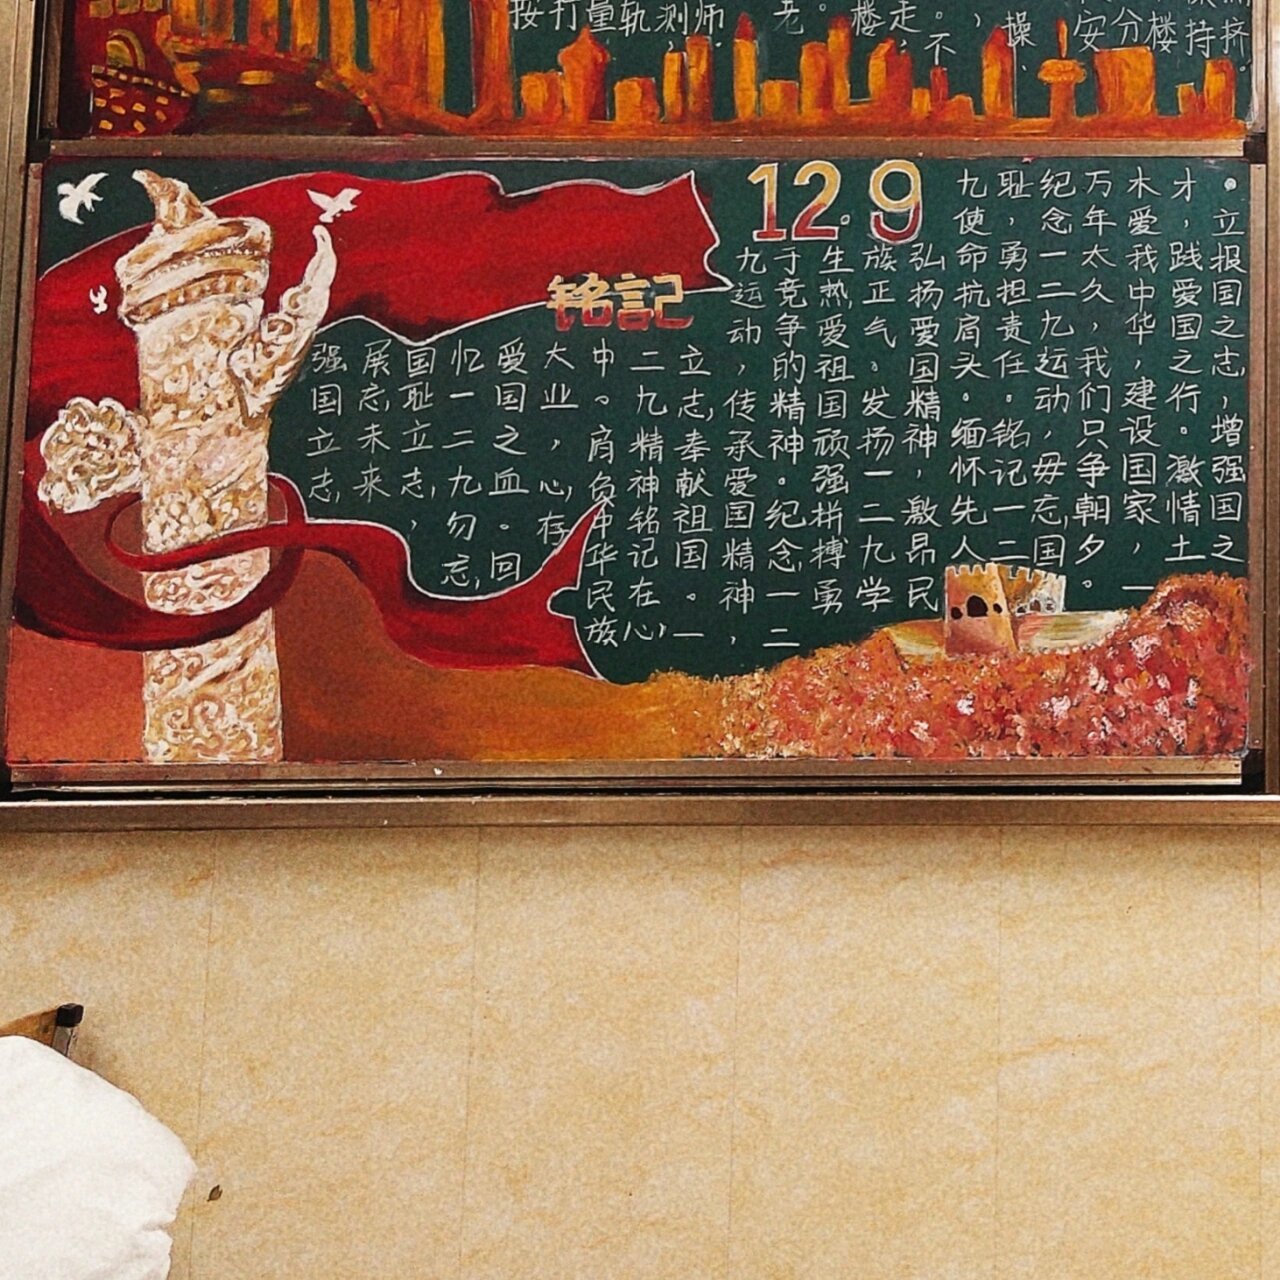 挤。
持
楼
分
安
操
，
不
走。
楼
老。
师
测
轨
量
打
按
12.9
铭記
。立报国之志，增强国之
才，践爱国之行。激情土
木爱我中华，建设国家，一
万年太久，我们只争朝夕。
纪念一二九运动，毋忘国
耻，勇担责任。铭记一二
九使命抗肩头。缅怀先人
弘扬爱国精神，激昂民
族正气。发扬一二九学
生热爱祖国顽强拼搏勇
于竞争的精神。纪念一二
九运动，传承爱国精神，
立志，奉献祖国。一
二九精神铭记在心，
中。肩负中华民族
大业，心存
爱国之血。回
忆一二九勿忘
国耻立志，
展忘未来
强国立志